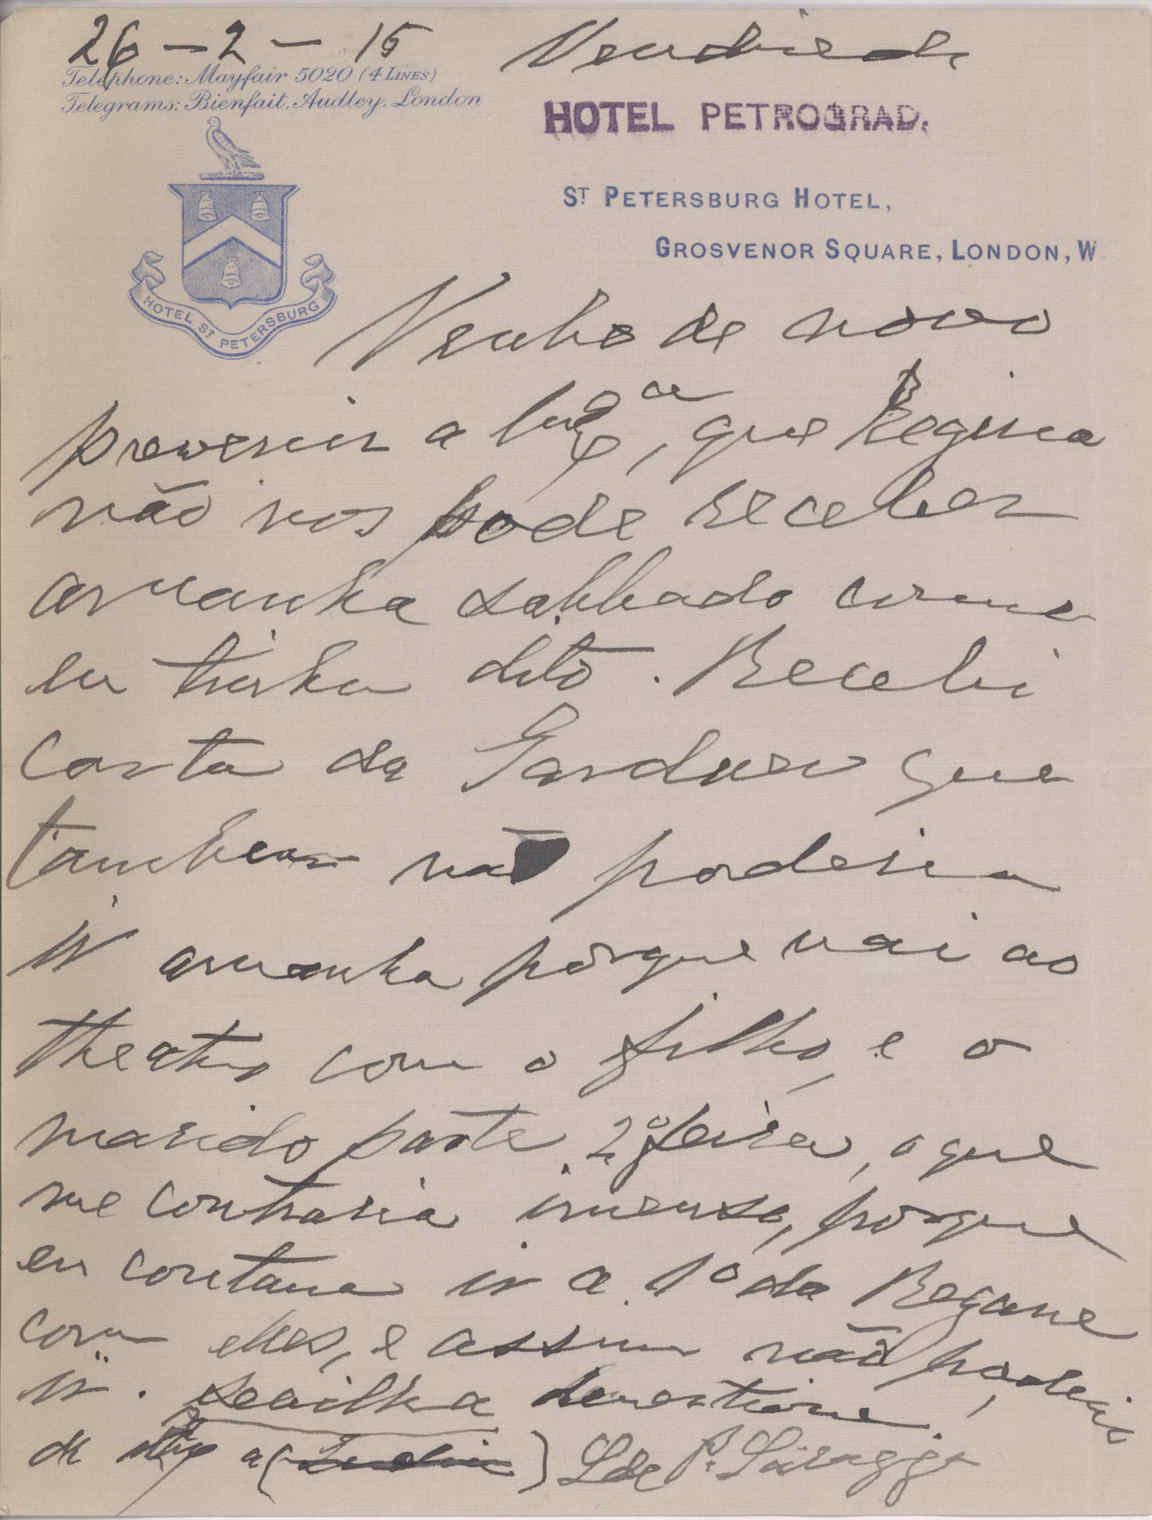 26-2-15 Vendredi
Telephone: Mayfair 5020 (4 LINES)
Telegrams: Bienfait, Audley, London
HOTEL PETROGRAD.
ST PETERSBURG HOTEL,
GROSVENOR SQUARE, LONDON, W
HOTEL ST PETERSBURG
Venho de novo
prevenir a que Regina
não nos pode receber
amanha sabbado como
eu tinha dito. Recebi
carta da que
tambem não poderia
ir amanha porque vai ao
theatro com o filho, e o
marido parte 2ª feira, o que
me contraria imenso, porque
eu contava ir a 1º da Begane
com elles, e assim não poderei
ir.
de a ( ) L de P.